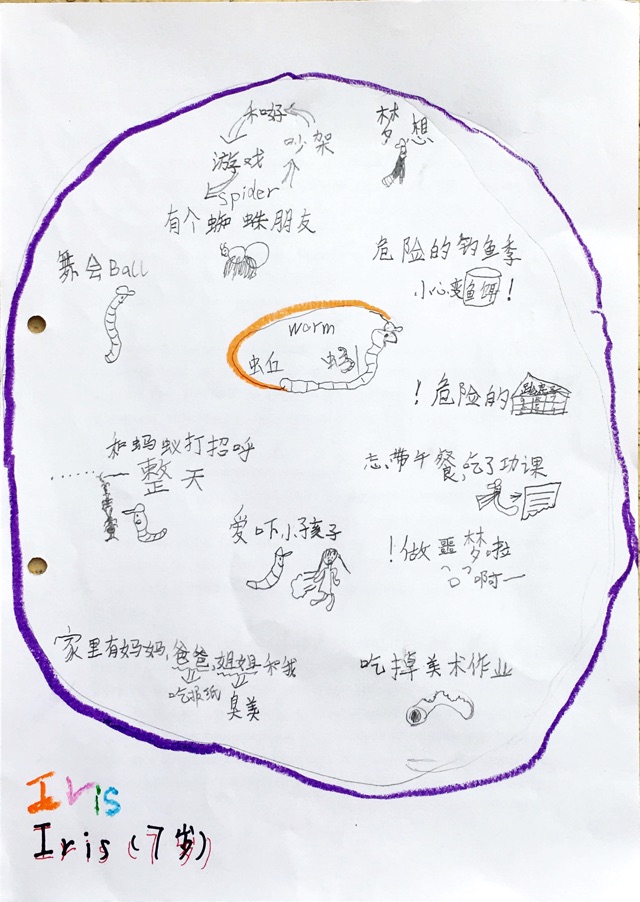 和好
游戏 吵架
梦想
Spider
有个蜘蛛朋友
舞会Ball
危险的钓鱼季
小心变鱼饵!
worm
蚯 蚓
!危险的
和蚂蚁打招呼
整天
忘带午餐,吃了功课
爱吓小孩子
!做噩梦啦
啊一
家里有妈妈,爸爸,姐姐和我
吃报纸
臭美
吃掉美术作业
Iris
Iris(7岁)